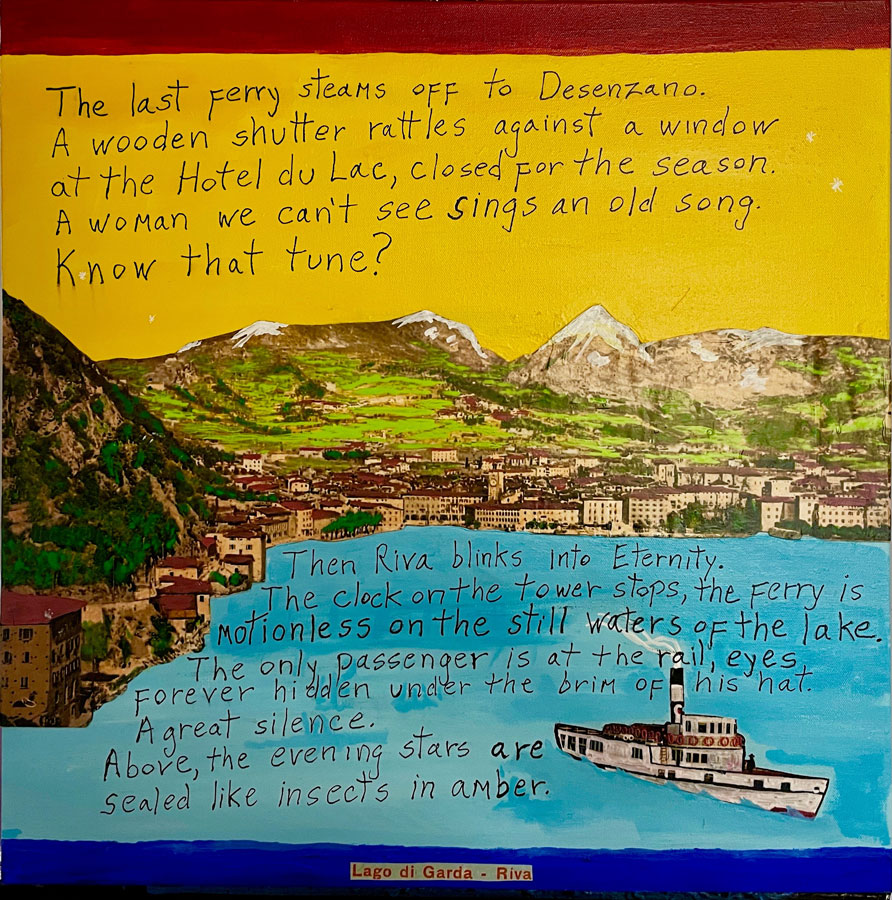 The last ferry steams off to Desenzano.
A wooden shutter rattles against a window
at the Hotel du Lac, closed for the season.
A woman we can't see sings an old song.
Know that tune?
Then Riva blinks into Eternity.
The clock on the tower stops, the ferry is
motionless on the still waters of the lake.
The only passenger is at the rail, eyes
forever hidden under the brim of his hat.
A great silence.
Above, the evening stars are
sealed like insects in amber.
Lago di Garda - Riva